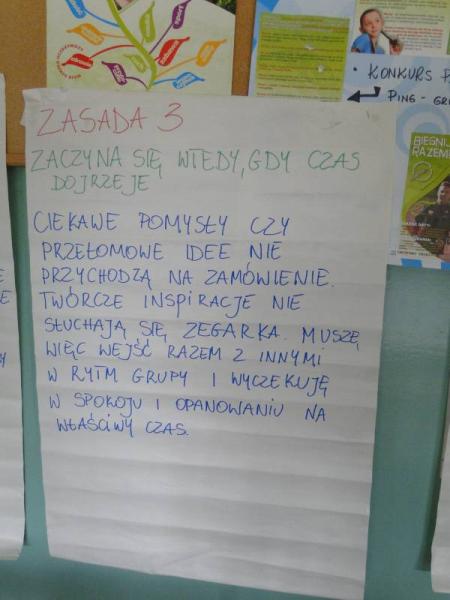 ZASADA 3
ZACZYNA SIĘ WTEDY, GDY CZAS
DOJRZEJE
CIEKAWE POMYSŁY CZY
PRZEŁOMOWE IDEE NIE
PRZYCHODZĄ NA ZAMÓWIENIE.
TWÓRCZE INSPIRACJE NIE
SŁUCHAJĄ SIĘ ZEGARKA. MUSZĘ
WIĘC WEJŚĆ RAZEM Z INNYMI
W RYTM GRUPY I WYCZEKUJĘ
W SPOKOJU I OPANOWANIU NA
WŁAŚCIWY CZAS.
• KONKURS P
PING-
BIEGNIJ
RAZEM